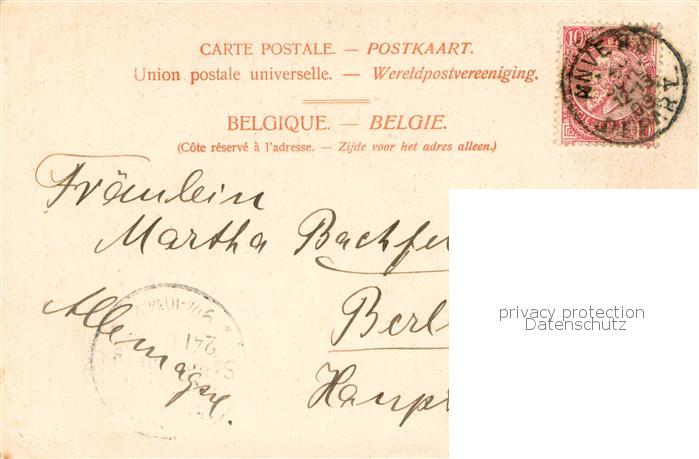 CARTE POSTALE. — POSTKAART.
Union postale universelle. — Wereldpostvereeniging.
BELGIQUE. — BELGIE.
(Côte réservé à l'adresse. — Zijde voor het adres alleen.)
10
ANVERS
Fräulein
Martha Bachfe
Berl
Allemagne.
Haupt
privacy protection
Datenschutz